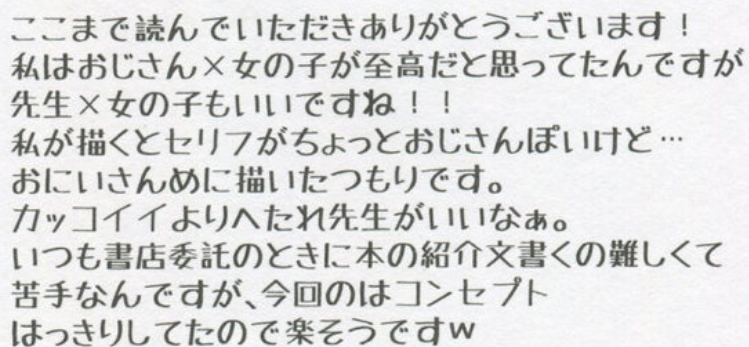 ここまで読んでいただきありがとうございます！
私はおじさん×女の子が至高だと思ってたんですが
先生×女の子もいいですね！！
私が描くとセリフがちょっとおじさんぽいけど…
おにいさんめに描いたつもりです。
カッコイイよりへたれ先生がいいなぁ。
いつも書店委託のときに本の紹介文書くの難しくて
苦手なんですが、今回のはコンセプト
はっきりしてたので楽そうですw